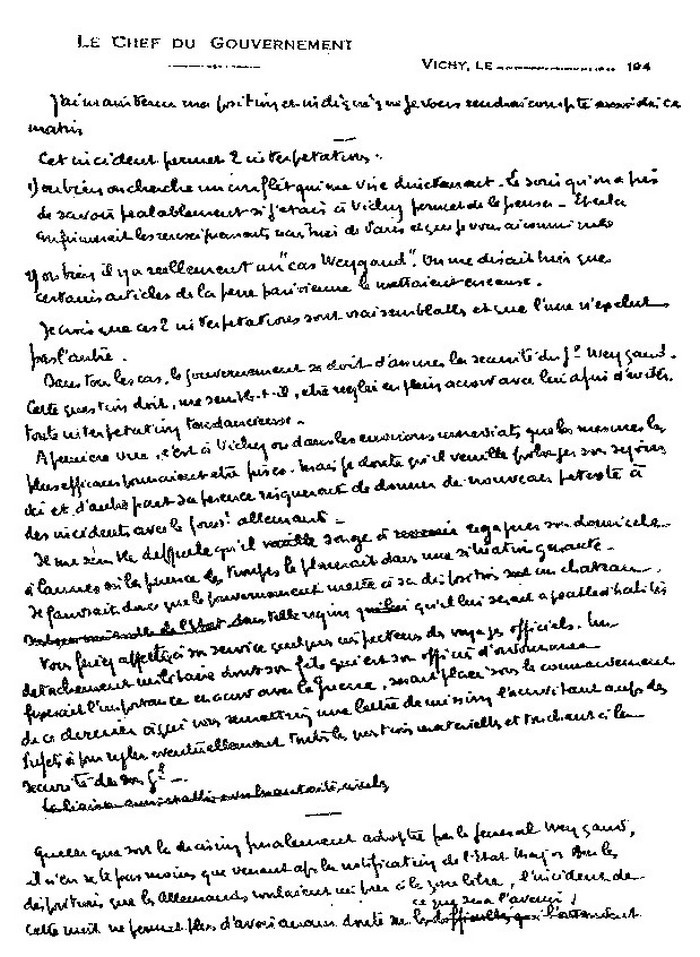 LE CHEF DU GOUVERNEMENT
VICHY, LE 194
J'ai maintenu ma position et indiqué que je vous rendrai compte aussi dès ce
matin
Cet incident permet 2 interpretations :
1) ou bien on cherche un conflit qui me vise directement. Le soin qu'on a pris
de savoir préalablement si j'etais à Vichy permet de le penser - Et cela
confirmerait les renseignements de Paris et que je vous ai communiqués
2) ou bien il y a reellement un "cas Weygand". On me disait hier que
certains articles de la presse parisienne le mettaient en cause.
Je crois que ces 2 interpetations sont vraisemblables et que l'une n'exclut
pas l'autre.
Dans tous les cas, le gouvernement se doit d'assurer la securité du Gal Weygand.
Cette question doit, me semble-t-il, etre reglée en plein accord avec lui afin d'eviter
toute interpetation tendancieuse.
A premiere vue, c'est à Vichy ou dans les environs immediats que les mesures les
plus efficaces pourraient etre prises. Mais je doute qu'il veuille prolonger son sejour
ici et d'autre part sa presence risquerait de donner de nouveaux pretexte à
des incidents avec le gouvt allemant -
Il me semble difficile qu'il songe à regagner son domicile
à Cannes où la presence des troupes le placerait dans une situation genante.
Il faudrait donc que le gouvernement mette à sa disposition un chateau
dans telle region qu'il lui serait agreable d'habiter
Vous feriez affecter à son service quelques inspecteurs des voyages officiels. Un
detachement militaire dont son fils qui est son officier d'ordonnance
fixerait l'importance en accord avec la Guerre, serait placé sous le commandement
de ce dernier à qui vous remettriez une lettre de mission l'accreditant auprès des
Prefets pour regler eventuellement toutes les questions materielles et touchant à la
securité de son Gal -
La liaison serait etablie avec les autorités civiles
Quelle que soit la decision finalement adoptée par le general Weygand,
il n'en reste pas moins que venant après la notification de l'Etat Major sur les
dispositions que les Allemands voulaient imposer à la zone libre, l'incident de
ce que sera l'avenir !
cette nuit ne permet plus d'avoir aucun doute sur les difficultés qui l'attendent